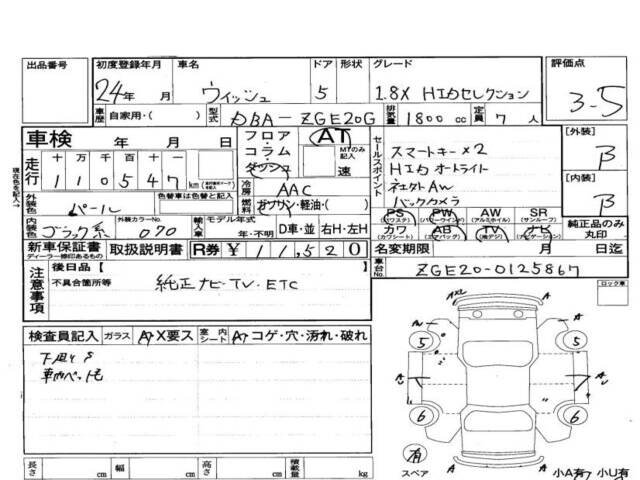 出品番号 初度登録年月 車名 ドア 形状 グレード 評価点
24年 月 ウィッシュ 5 1.8X HIDセレクション 3-5
車歴 自家用・( ) 型式 DBA-ZGE20G 排気量 1800cc 定員 7人
車検 年 月 日 フロア・コラム・ダッシュ AT MTのみ記入 速 セールスポイント スマートキー×2 [外装] B
走行 十 万 千 百 十 一 HIDオートライト
現在色を記入→ 1 1 0 5 4 7 km ネエクトAW [内装] B
外装色 パール 色替車は色替と記入 冷房 AAC バックカメラ
燃料 ガソリン・軽油・( ) PS (パワステ) PW (パワーウインドー) AW (アルミホイル) SR (サンルーフ) 純正品のみ丸印
内装色 ブラック系 外装カラーNo. 070 輸入車 モデル年式 年・不明 D車・並 右H・左H カワ (カワシート) AB (エアバッグ) TV (地デジ) ナビ (ナビゲーション)
新車保証書 ディーラー捺印あるもの 取扱説明書 R券 ¥ 11,520 名変期限 月 日迄
注意事項 後日品 [ ] 車台No. ZGE20-0125867
不具合箇所等 純正ナビ・TV・ETC ロック車
検査員記入 ガラス A X要ス 室内シート A コゲ・穴・汚れ・破れ AXL A
下廻りS AW 5 5 A
車内ペット毛 A
6 6
有 スペア A A
長さ cm 幅 cm 高さ cm 積載量 kg 小A有 小U有